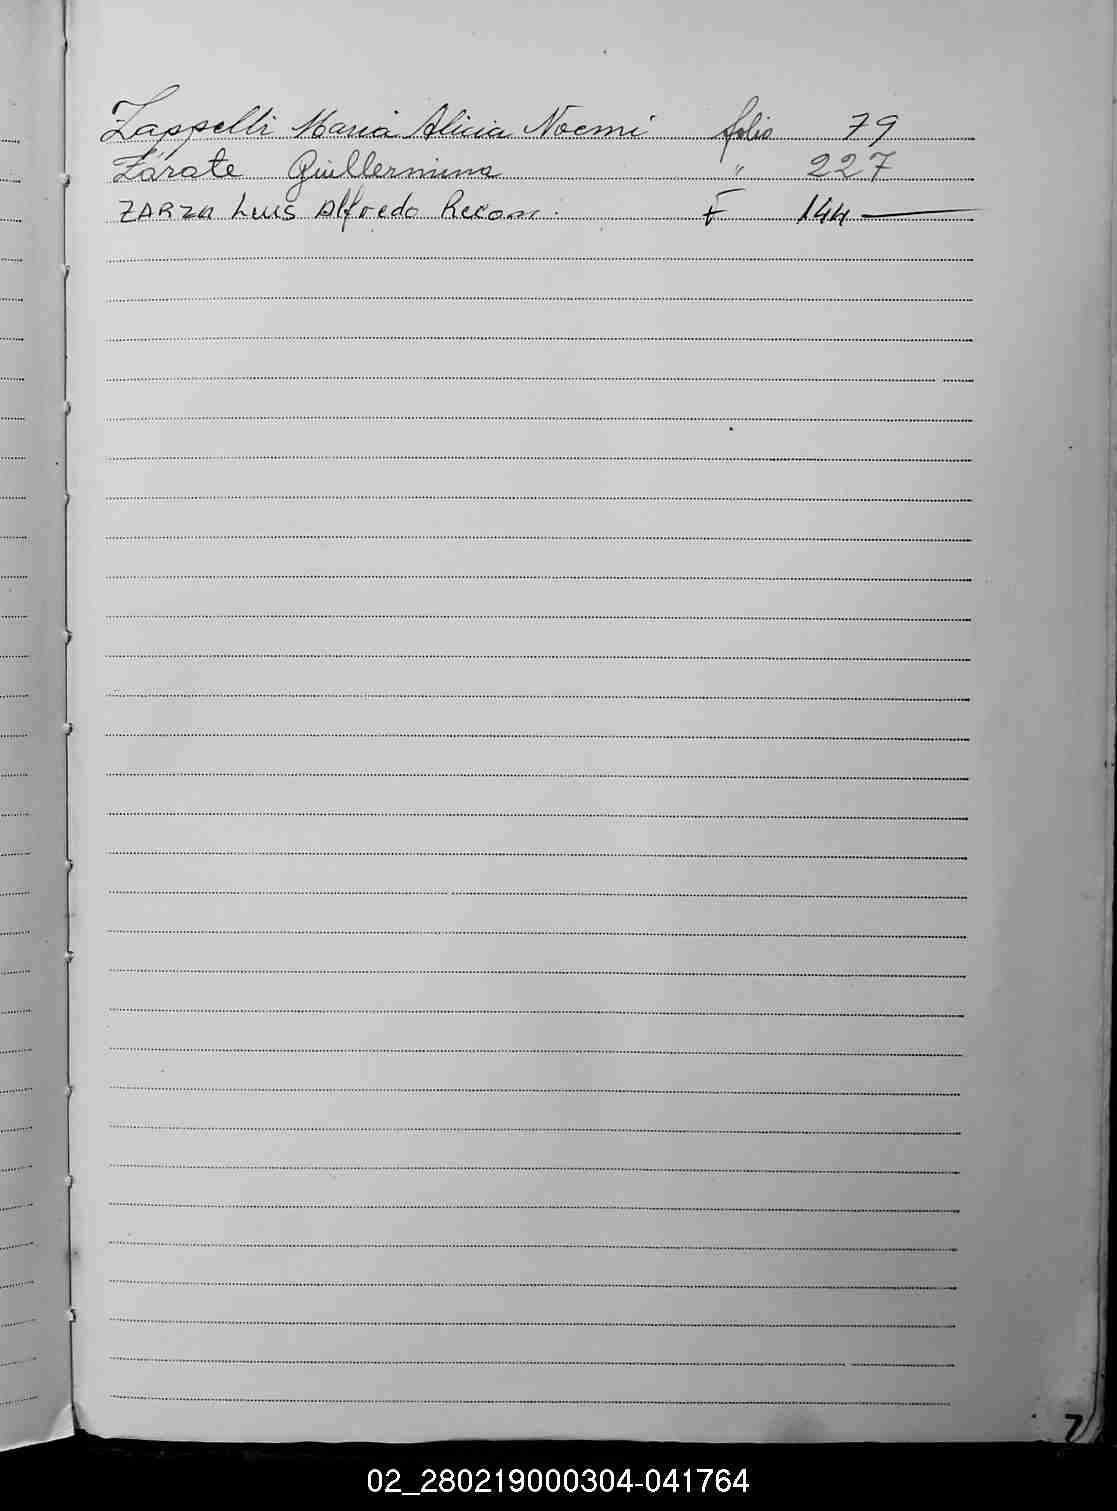 Zappelli Maria Alicia Noemi folio 79
Zárate Guillermina " 227
ZARZA Luis Alfredo Recon. F 144
Z
02_280219000304-041764